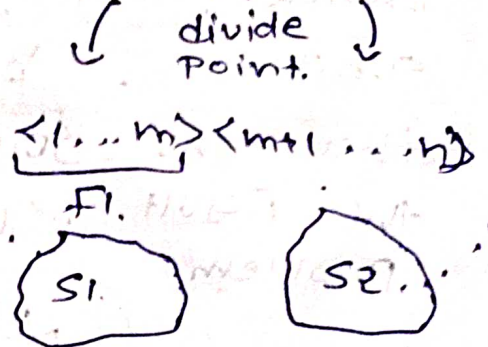 divide
Point.
<1...m> <m+1 ...n>
F1.
S1. S2....